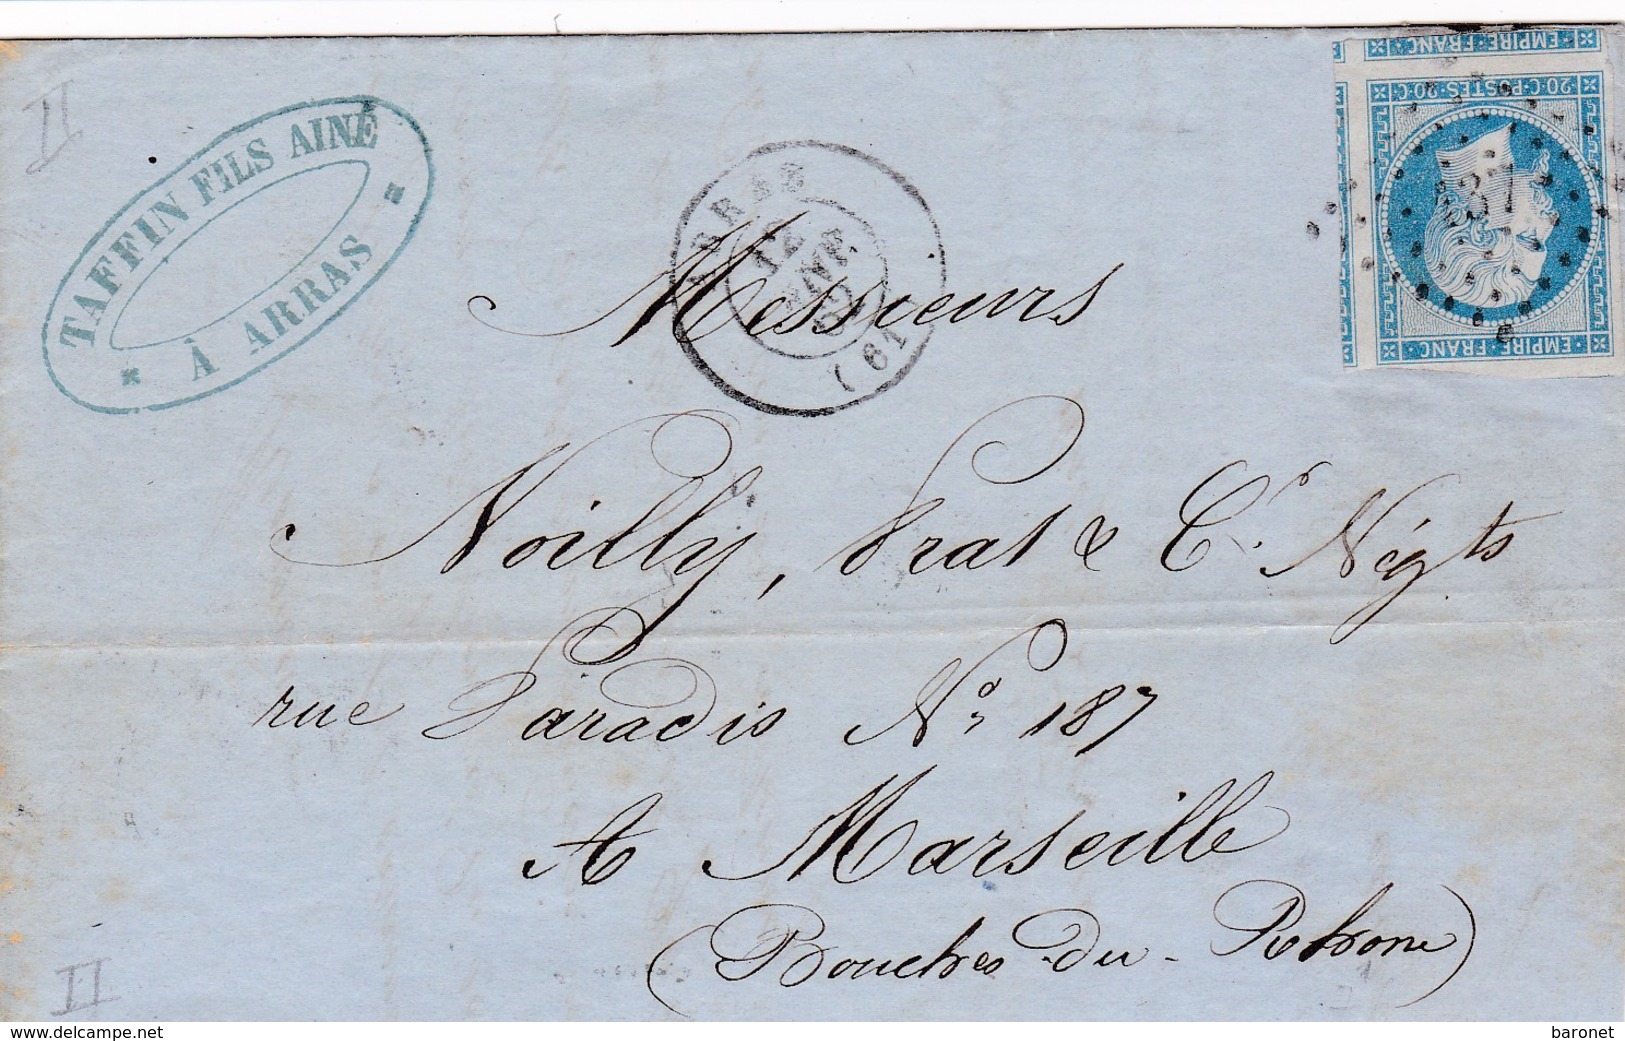 II
TAFFIN FILS AINÉ
À ARRAS
ARRAS
12
JANV.
62
(61)
EMPIRE·FRANC
20·C·POSTES·20·C
137
EMPIRE·FRANC
Messieurs
Noilly, Prat & Cie Négts
rue Paradis No 187
A Marseille
(Bouches-du-Rhone)
II
www.delcampe.net
baronet